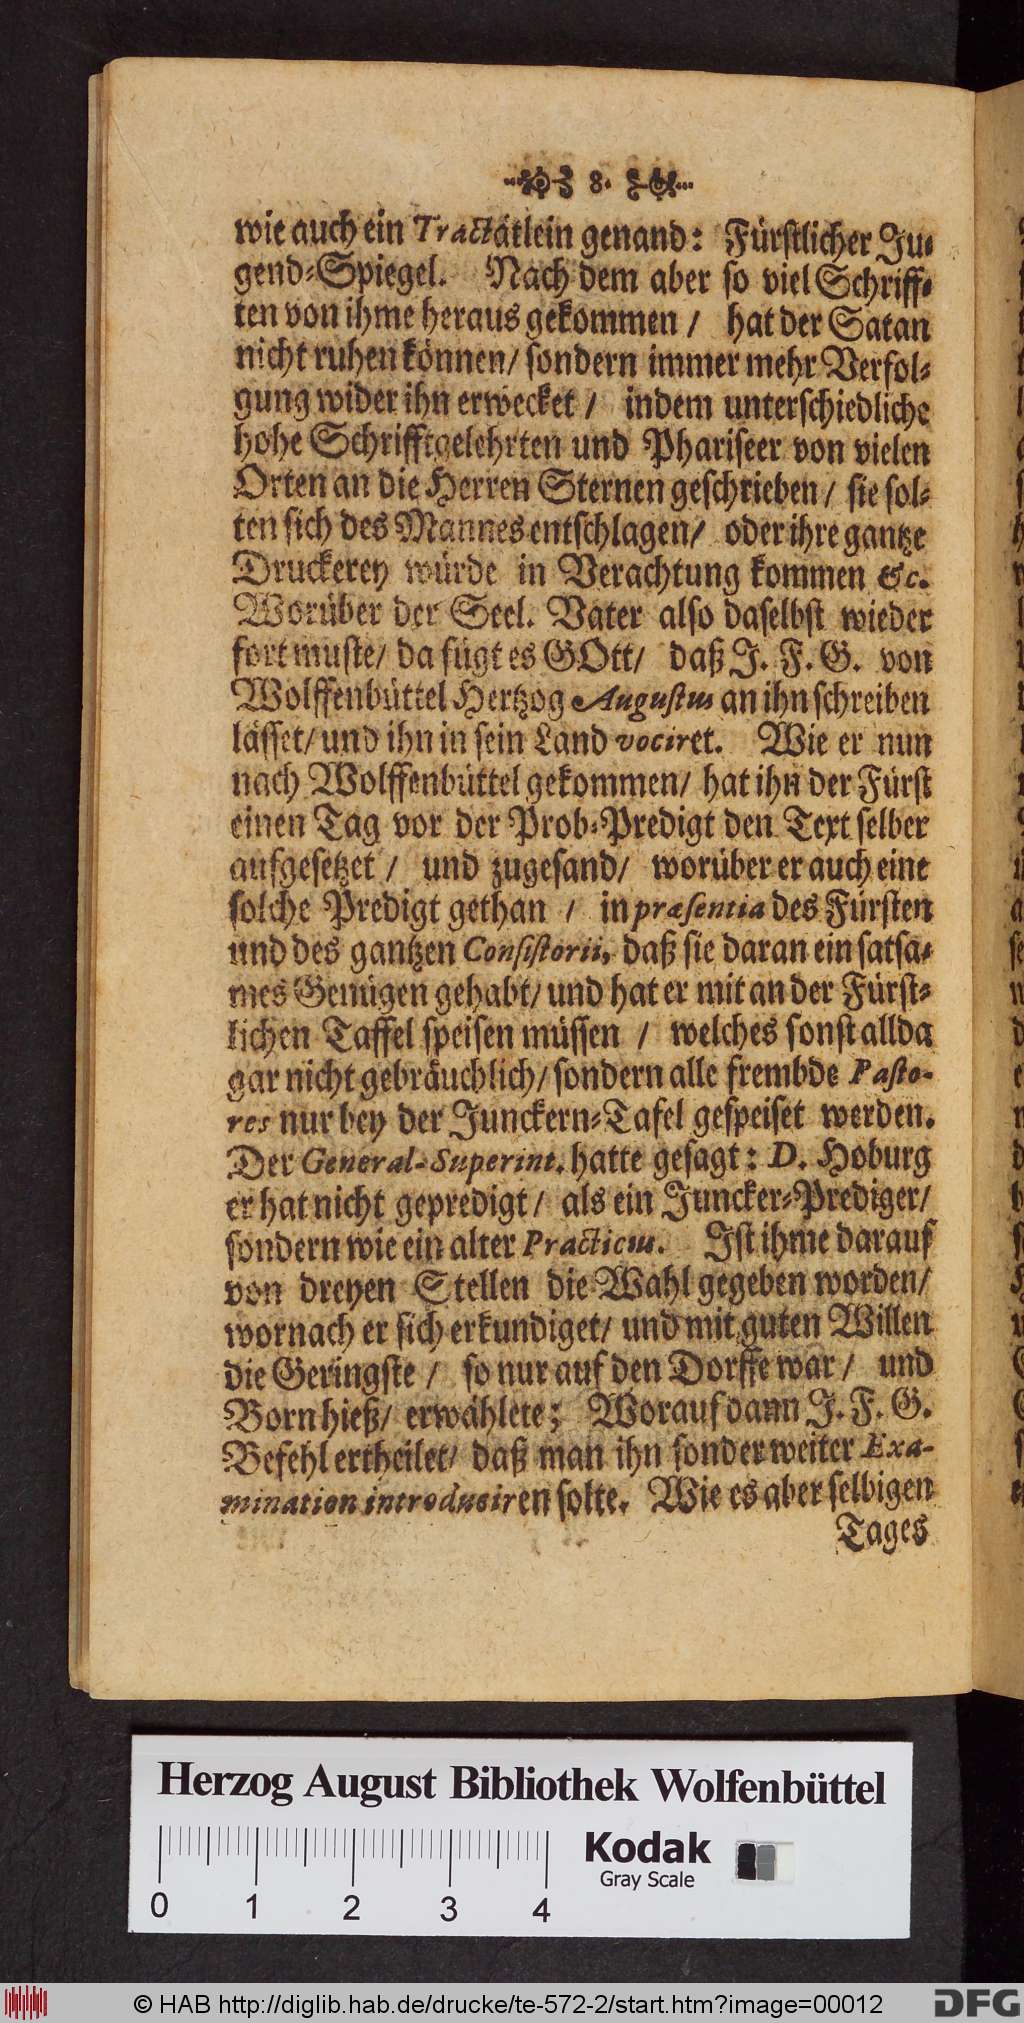 8.
wie auch ein Tractätlein genand: Fürstlicher Ju-
gend-Spiegel. Nach dem aber so viel Schriff-
ten von ihme heraus gekommen / hat der Satan
nicht ruhen können/ sondern immer mehr Verfol-
gung wider ihn erwecket / indem unterschiedliche
hohe Schrifftgelehrten und Phariseer von vielen
Orten an die Herren Sternen geschrieben/ sie sol-
ten sich des Mannes entschlagen/ oder ihre gantze
Druckerey würde in Verachtung kommen &c.
Worüber der Seel. Vater also daselbst wieder
fort muste/ da fügt es GOtt/ daß J. F. G. von
Wolffenbüttel Hertzog Augustus an ihn schreiben
lässet/ und ihn in sein Land vociret. Wie er nun
nach Wolffenbüttel gekommen/ hat ihn der Fürst
einen Tag vor der Prob-Predigt den Text selber
aufgesetzet / und zugesand/ worüber er auch eine
solche Predigt gethan / in præsentia des Fürsten
und des gantzen Consistorii, daß sie daran ein satsa-
mes Genügen gehabt/ und hat er mit an der Fürst-
lichen Taffel speisen müssen / welches sonst allda
gar nicht gebräuchlich/ sondern alle frembde Pasto-
res nur bey der Junckern-Tafel gespeiset werden.
Der General-Superint. hatte gesagt: D. Hoburg
er hat nicht gepredigt / als ein Juncker-Prediger/
sondern wie ein alter Practicus. Ist ihme darauf
von dreyen Stellen die Wahl gegeben worden/
wornach er sich erkundiget/ und mit guten Willen
die Geringste / so nur auf den Dorffe war / und
Born hieß/ erwählete; Worauf dann J. F. G.
Befehl ertheilet/ daß man ihn sonder weiter Exa-
mination introduciren solte. Wie es aber selbigen
Tages
Herzog August Bibliothek Wolfenbüttel
0 1 2 3 4
Kodak
Gray Scale
© HAB http://diglib.hab.de/drucke/te-572-2/start.htm?image=00012
DFG